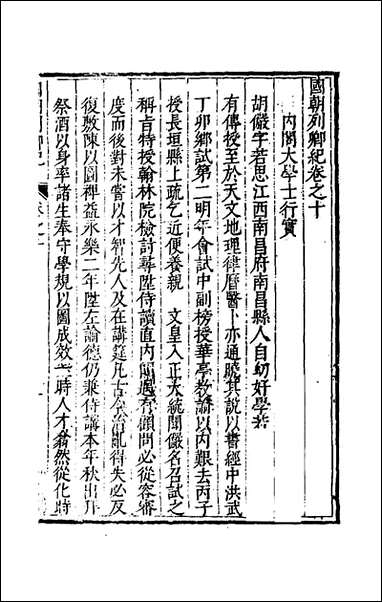 國朝列卿紀卷之十
內閣大學士行實
胡儼字若思江西南昌府南昌縣人自幼好學若
有傳授至於天文地理律曆醫卜亦通曉其說以書經中洪武
丁卯鄉試第二明年會試中副榜授華亭教諭以內艱去丙子
授長垣縣上疏乞近便養親 文皇入正大統聞儼名召試之
稱旨特授翰林院檢討尋陞侍讀直內閣遇有顧問必從容審
度而後對未嘗以才智先人及在講筵凡古今治亂得失必反
復敷陳以圖裨益永樂二年陞左諭德仍兼侍講本年秋出升
祭酒以身率諸生奉守學規以圖成效一時人才翕然從化時